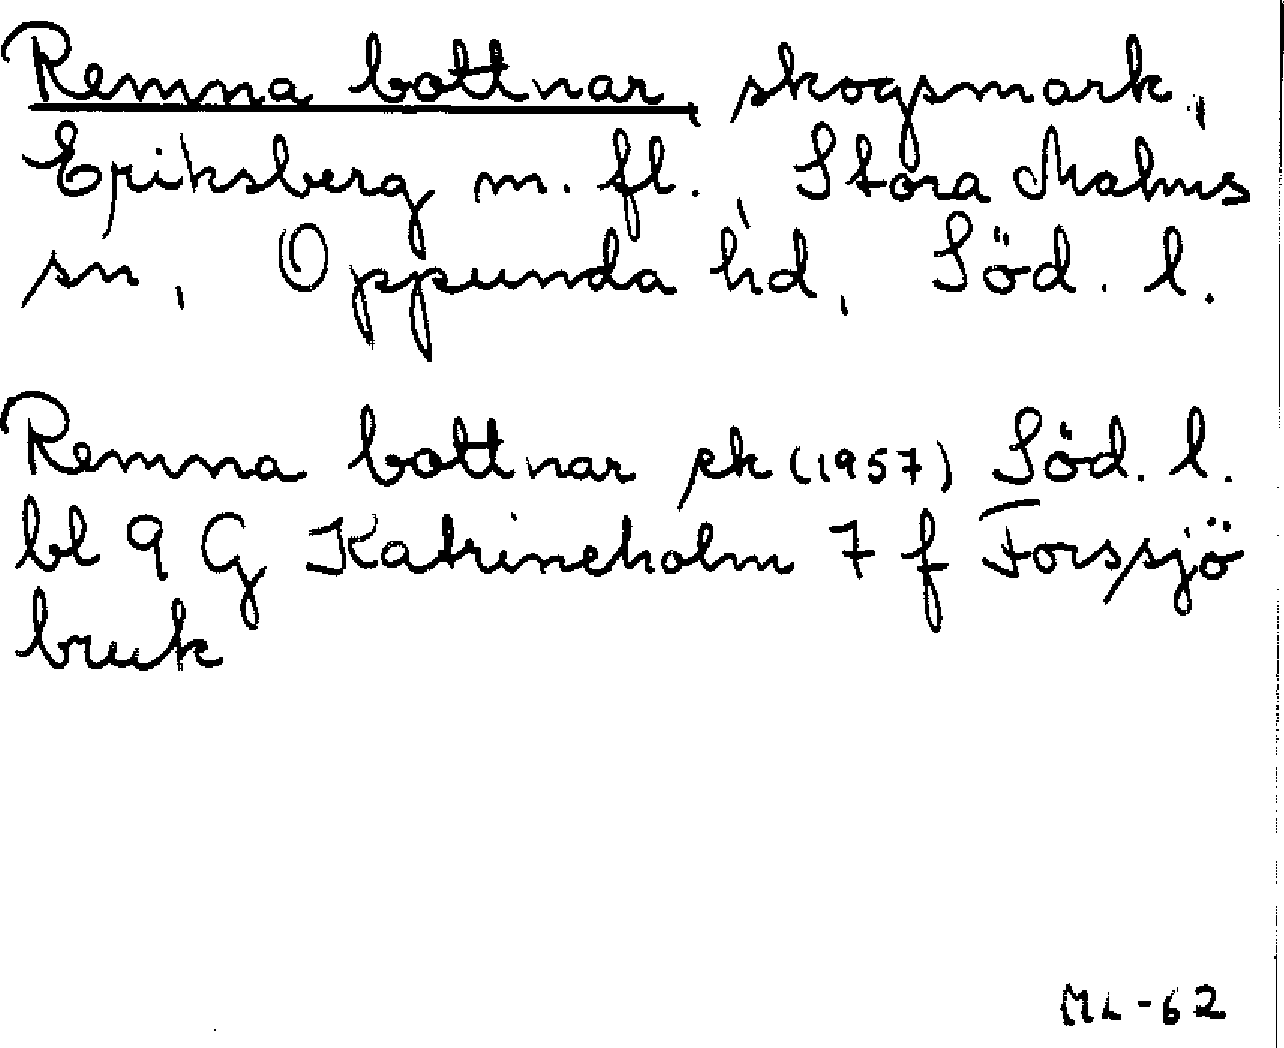 Remna bottnar, skogsmark,
Eriksberg m. fl., Stora Malms
sn, Oppunda hd, Söd. l.
Remna bottnar ek (1957) Söd. l.
bl 9 G Katrineholm 7 f Forssjö
bruk
ML-62